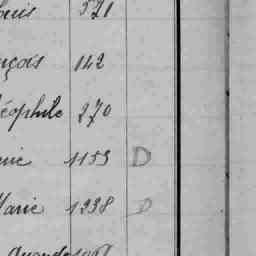 ouis 571
nçois 142
éophile 270
rie 1153 D
Marie 1238 D